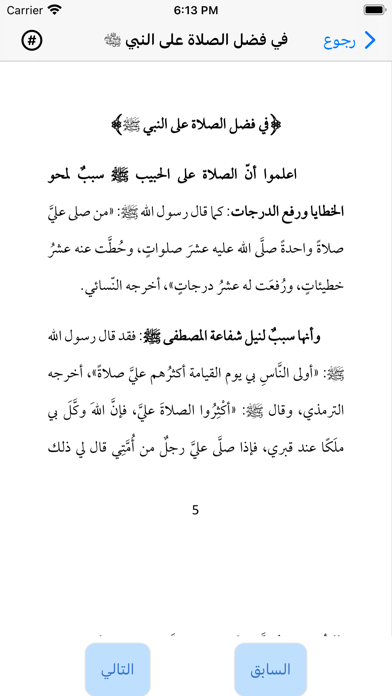 Carrier 6:13 PM
رجوع
في فضل الصلاة على النبي ﷺ
#
﴿في فضل الصلاة على النبي ﷺ﴾
اعلموا أنّ الصلاة على الحبيب ﷺ سببٌ لمحو
الخطايا ورفع الدرجات: كما قال رسول الله ﷺ: «من صلى عليَّ
صلاةً واحدةً صلَّى الله عليه عشرَ صلواتٍ، وحُطَّت عنه عشرُ
خطيئاتٍ، ورُفعَت له عشرُ درجاتٍ»، أخرجه النّسائي.
وأنها سببٌ لنيل شفاعة المصطفى ﷺ: فقد قال رسول الله
ﷺ: «أولى النَّاسِ بي يوم القيامة أكثرُهم عليَّ صلاةً»، أخرجه
الترمذي، وقال ﷺ: «أكْثِرُوا الصلاةَ عليَّ، فإنَّ اللهَ وكَّلَ بي
ملَكًا عند قبري، فإذا صلَّى عليَّ رجلٌ من أُمَّتِي قال لي ذلك
5
السابق
التالي